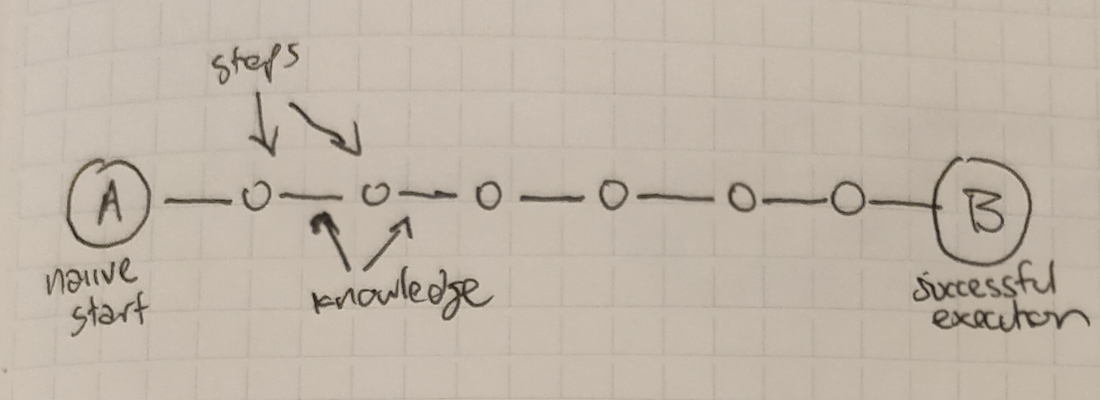 steps
A
B
naiive
start
knowledge
successful
execution